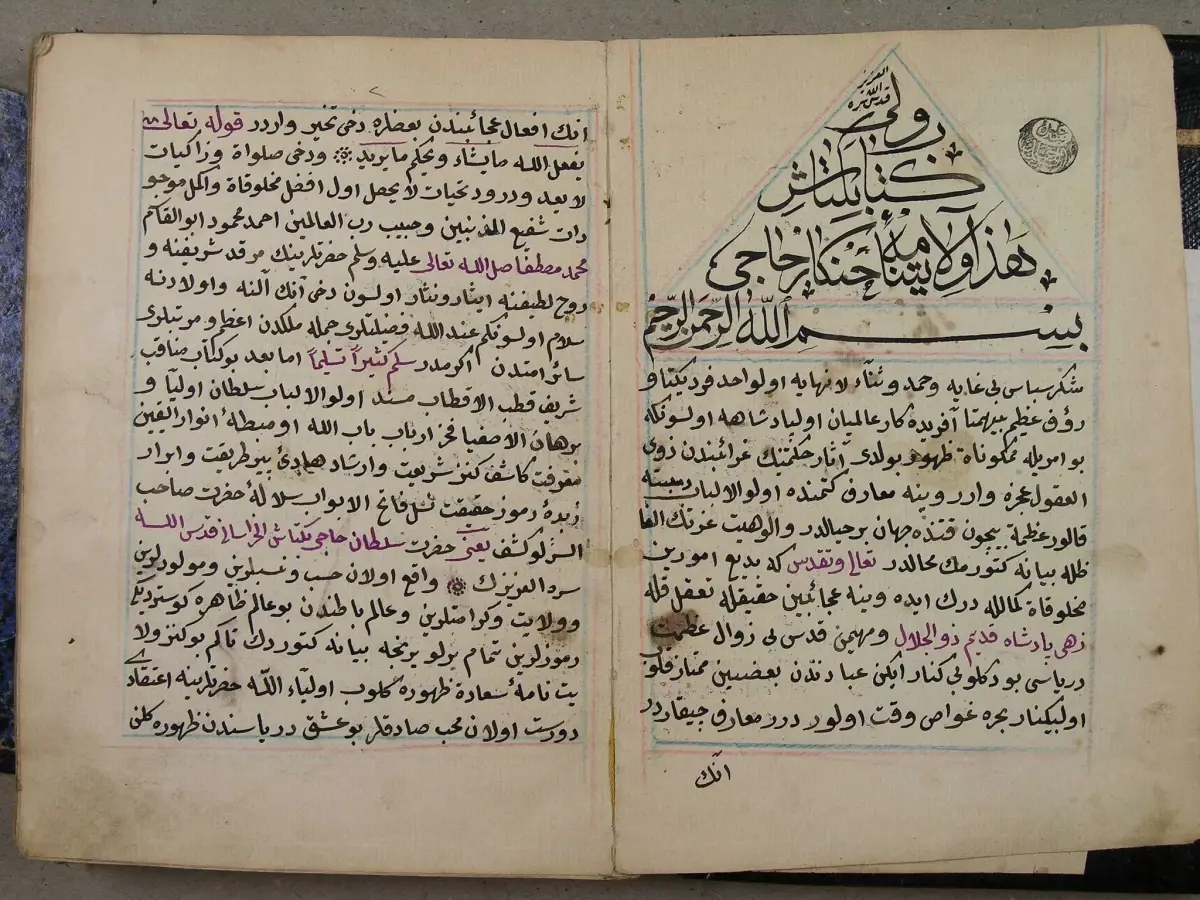 العزيز
قدس الله سره
ولى
كتاب بكتاش
هذا ولايتنامۀ خنكار حاجى
بسم الله الرحمن الرحيم
شكر سپاس بى غايه وحمد وثناء لا نهايه اولواحد فرد يكتا و
رؤف عظيم بيهمتا آفريده كار عالميان اولياد شاهه اولسونكه
بو امريله ممكوناة ظهور بولدى آثار حكمتينك غرائبندن ذوى
العقول عجزه وارر وينه معارف كتمنده اولو الالباب
قالور عظمة بيچون قتنده جهان بر حيالدر والوهيت عزتك
ظله بيانه كتورمك محالدر تعالى وتقدس كه بديع امورين
مخلوقاة كمالله درك ايده وينه عجائبين حقيقله تعقل قله
زهى پادشاه قديم ذو الجلال ومهيمن قدس بى زوال عظمت
درياسى بودكلو بى كنار ايكن عبادندن بعضيين ممتاز قلور
اولبيكنار بحره غواص وقت اولور درر معارف جيقاردر
انك
٢
انك افعال عجائبندن بعضلره دخى تحير واردر قوله تعالى
يفعل الله مايشاء ويحكم مايريد ودخى صلواة وزاكيات
لا يعد ودرود تحيات لا يحصل اول افضل مخلوقاة واكمل موجو
دات شفيع المذنبين وحبيب رب العالمين احمد محمود ابو القاسم
محمد مصطفا صل الله تعالى عليه وسلم حضرتلرينك مرقد شريفنه و
روح لطيفنه ايثار ونثار اولسون دخى آنك آلنه واولادنه
سلام اولسونكم عند الله فضيلتلوى جمله ملكدن اعظم ومرتبلرى
سائر امتدن اكرمدر سلم كثيراً تسليماً اما بعد بوكتاب مناقب
شريف قطب الاقطاب مسند اولو الالباب سلطان اوليآ و
برهان الاصفيا فخر ارباب باب الله اومبطۀ انوار اليقين
معرفت كاشف كنز شريعت وارشاد هادئ پير طريقت وابرار
زبدۀ رموز حقيقت فاتح الابواب سلالۀ حضرت صاحب
السرلو كشف يعنى حضرت سلطان حاجى بكتاش الخراسانى قدس الله
سره العزيزك واقع اولان حسب ونسبلرين ومولودلرين
وولايت وكرامتلرين وعالم باطندن بو عالم ظاهره كوستردىكى
رموزلرين تمام بولو يرنجه بيانه كتوردك تاكم بوكنز ولا
يت نامۀ سعادة ظهوره كلوب اولياء الله حضرتلرينه اعتقادى
دورست اولان محب صادقلر بو عشق درياسندن ظهوره كلن